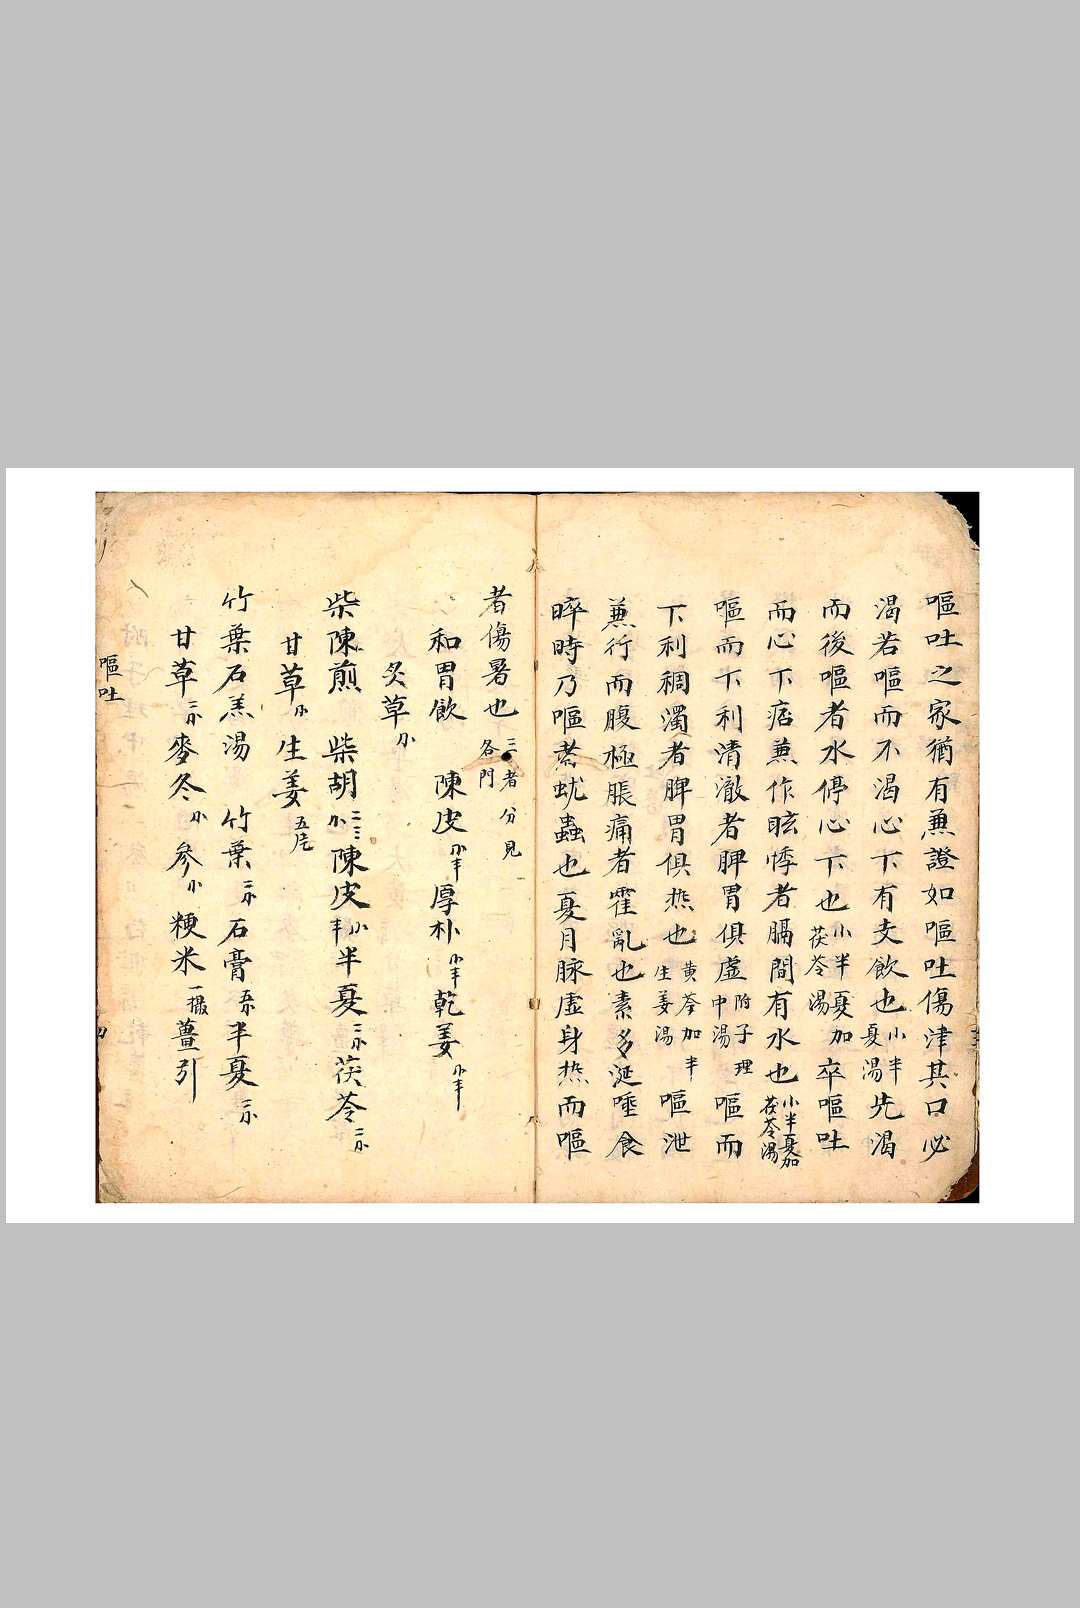 嘔吐之家猶有兼證如嘔吐傷津其口必
渴若嘔而不渴心下有支飲也小半夏湯先渴
而後嘔者水停心下也小半夏加茯苓湯卒嘔吐
而心下痞兼作眩悸者膈間有水也小半夏加茯苓湯
嘔而下利清澈者脾胃俱虛附子理中湯嘔而
下利稠濁者脾胃俱热也黄芩加半生姜湯嘔泄
兼行而腹極脹痛者霍亂也素多涎唾食
晬時乃嘔者蚘蟲也夏月脉虛身热而嘔
者傷暑也三者分見各門
和胃飲 陳皮小半厚朴小半乾姜小半
炙草小
柴陳煎 柴胡小二三陳皮小半半夏二小茯苓二小
甘草小生姜五片
竹葉石羔湯 竹葉二小石膏五小半夏二小
甘草二小麥冬小參小粳米一撮薑引
嘔吐